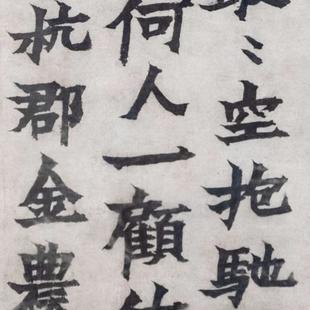 〻空抱馳
何人一顧
杭郡金農